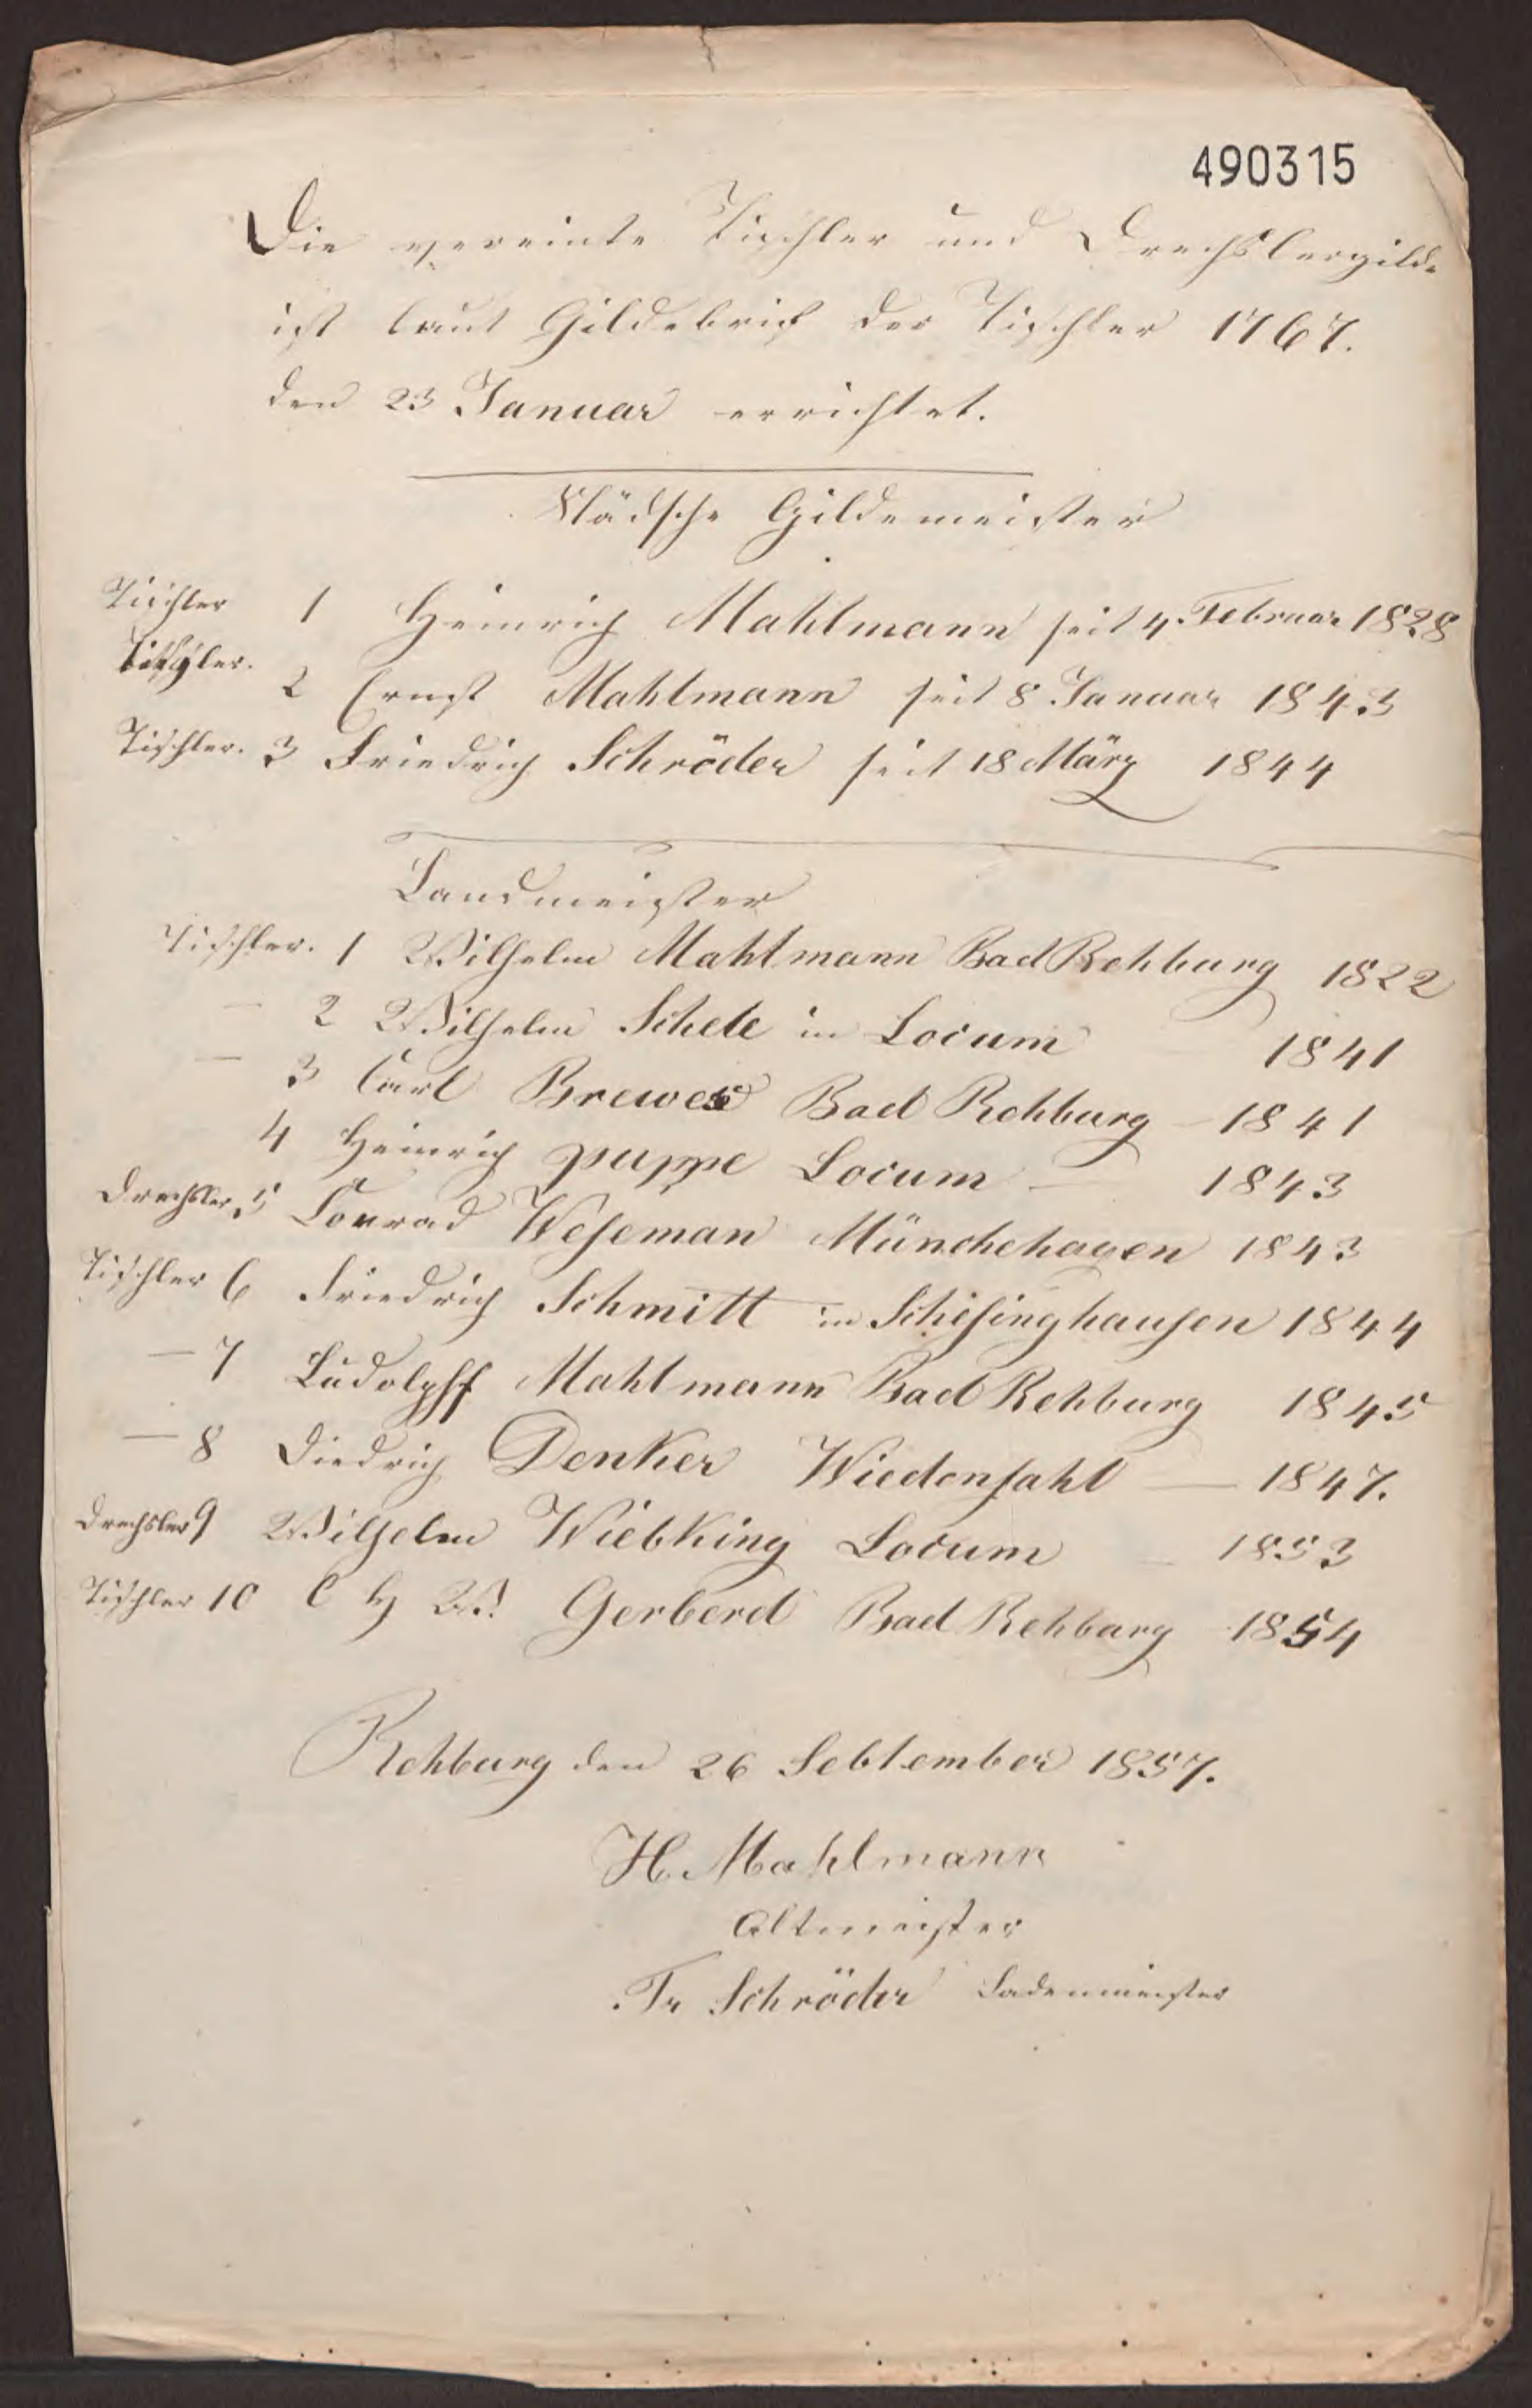 490315
Die vereinte Tischler und Drechslergilde
ist laut Gildebrief der Tischler 1767.
den 23 Januar errichtet.
Städsche Gildemeister
Tischler 1 Heinrich Mahlmann seit 4. Februar 1828
Tischler. 2 Ernst Mahlmann seit 8 Januar 1843
Tischler. 3 Friedrich Schröder seit 18 März 1844
Landmeister
Tischler. 1 Wilhelm Mahlmann Bad Rehburg 1822
— 2 Wilhelm Schele in Locum 1841
— 3 Carl Brewer Bad Rehburg – 1841
4 Heinrich puppe Locum — 1843
Drechsler 5 Conrad Weseman Münchehagen 1843
Tischler 6 Friedrich Schmitt in Schesinghausen 1844
— 7 Ludolpff Mahlmann Bad Rehburg 1845
— 8 Diedrich Denker Wiedensahl — 1847.
Drechsler 9 Wilhelm Wiebking Locum – 1853
Tischler 10 C H W. Gerberd Bad Rehburg 1854
Rehburg den 26 Sebtember 1857.
H. Mahlmann
Altmeister
Fr Schröder Ladenmeister